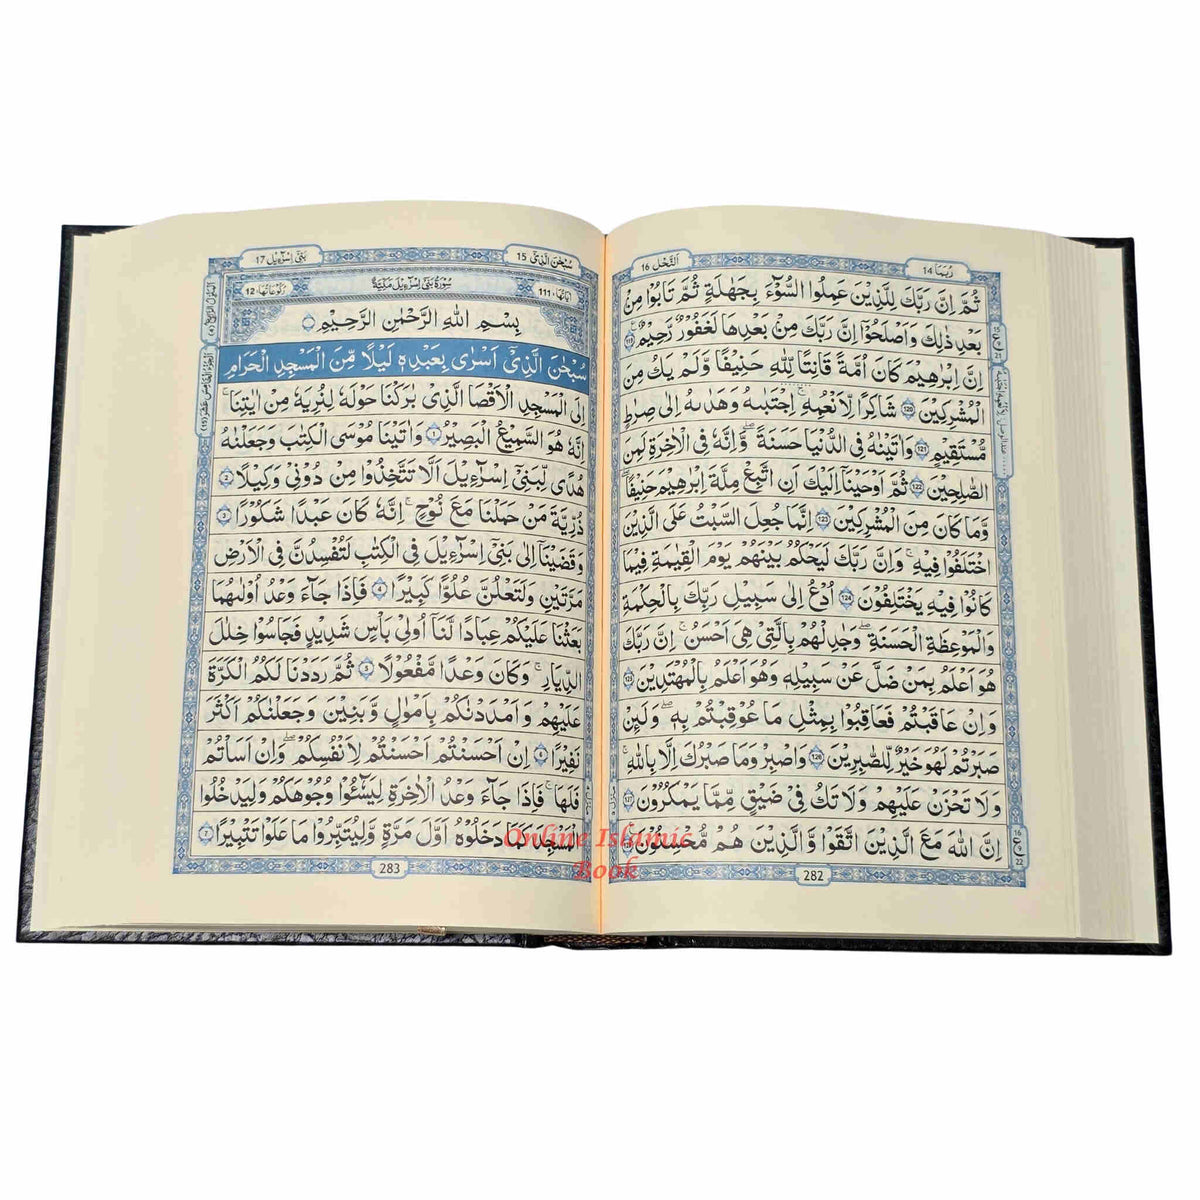 رُبَمَا 14
اَلنَّحْل 16
ثُمَّ اِنَّ رَبَّكَ لِلَّذِيْنَ عَمِلُوا السُّوْٓءَ بِجَهَالَةٍ ثُمَّ تَابُوْا مِنْۢ
بَعْدِ ذٰلِكَ وَاَصْلَحُوْٓا اِنَّ رَبَّكَ مِنْۢ بَعْدِهَا لَغَفُوْرٌ رَّحِيْمٌ 119
اِنَّ اِبْرٰهِيْمَ كَانَ اُمَّةً قَانِتًا لِّلّٰهِ حَنِيْفًا وَّلَمْ يَكُ مِنَ
الْمُشْرِكِيْنَ 120 شَاكِرًا لِّاَنْعُمِهٖ ۚ اِجْتَبٰىهُ وَهَدٰىهُ اِلٰى صِرَاطٍ
مُّسْتَقِيْمٍ 121 وَاٰتَيْنٰهُ فِى الدُّنْيَا حَسَنَةً ۖ وَاِنَّهٗ فِى الْاٰخِرَةِ لَمِنَ
الصّٰلِحِيْنَ 122 ثُمَّ اَوْحَيْنَآ اِلَيْكَ اَنِ اتَّبِعْ مِلَّةَ اِبْرٰهِيْمَ حَنِيْفًا ۖ
وَمَا كَانَ مِنَ الْمُشْرِكِيْنَ 123 اِنَّمَا جُعِلَ السَّبْتُ عَلَى الَّذِيْنَ
اخْتَلَفُوْا فِيْهِ ۚ وَاِنَّ رَبَّكَ لَيَحْكُمُ بَيْنَهُمْ يَوْمَ الْقِيٰمَةِ فِيْمَا
كَانُوْا فِيْهِ يَخْتَلِفُوْنَ 124 اُدْعُ اِلٰى سَبِيْلِ رَبِّكَ بِالْحِكْمَةِ
وَالْمَوْعِظَةِ الْحَسَنَةِ ۖ وَجَادِلْهُمْ بِالَّتِيْ هِىَ اَحْسَنُ ۚ اِنَّ رَبَّكَ
هُوَ اَعْلَمُ بِمَنْ ضَلَّ عَنْ سَبِيْلِهٖ وَهُوَ اَعْلَمُ بِالْمُهْتَدِيْنَ 125
وَاِنْ عَاقَبْتُمْ فَعَاقِبُوْا بِمِثْلِ مَا عُوْقِبْتُمْ بِهٖ ۖ وَلَئِنْ
صَبَرْتُمْ لَهُوَ خَيْرٌ لِّلصّٰبِرِيْنَ 126 وَاصْبِرْ وَمَا صَبْرُكَ اِلَّا بِاللّٰهِ ۚ
وَلَا تَحْزَنْ عَلَيْهِمْ وَلَا تَكُ فِيْ ضَيْقٍ مِّمَّا يَمْكُرُوْنَ 127
اِنَّ اللّٰهَ مَعَ الَّذِيْنَ اتَّقَوْا وَّالَّذِيْنَ هُمْ مُّحْسِنُوْنَ
16
22
282
سُبْحٰنَ الَّذِيْٓ 15
بَنِيْٓ اِسْرَآءِيْل 17
اٰيَاتُهَا 111
سُوْرَةُ بَنِيْٓ اِسْرَآءِيْلَ مَكِّيَّةٌ
رُكُوْعَاتُهَا 12
بِسْمِ اللّٰهِ الرَّحْمٰنِ الرَّحِيْمِ
سُبْحٰنَ الَّذِيْٓ اَسْرٰى بِعَبْدِهٖ لَيْلًا مِّنَ الْمَسْجِدِ الْحَرَامِ
اِلَى الْمَسْجِدِ الْاَقْصَا الَّذِيْ بٰرَكْنَا حَوْلَهٗ لِنُرِيَهٗ مِنْ اٰيٰتِنَا ۚ
اِنَّهٗ هُوَ السَّمِيْعُ الْبَصِيْرُ 1 وَاٰتَيْنَا مُوْسَى الْكِتٰبَ وَجَعَلْنٰهُ
هُدًى لِّبَنِيْٓ اِسْرَآءِيْلَ اَلَّا تَتَّخِذُوْا مِنْ دُوْنِيْ وَكِيْلًا 2
ذُرِّيَّةَ مَنْ حَمَلْنَا مَعَ نُوْحٍ ۚ اِنَّهٗ كَانَ عَبْدًا شَكُوْرًا 3
وَقَضَيْنَآ اِلٰى بَنِيْٓ اِسْرَآءِيْلَ فِى الْكِتٰبِ لَتُفْسِدُنَّ فِى الْاَرْضِ
مَرَّتَيْنِ وَلَتَعْلُنَّ عُلُوًّا كَبِيْرًا 4 فَاِذَا جَآءَ وَعْدُ اُوْلٰىهُمَا
بَعَثْنَا عَلَيْكُمْ عِبَادًا لَّنَآ اُولِيْ بَاْسٍ شَدِيْدٍ فَجَاسُوْا خِلٰلَ
الدِّيَارِ ۚ وَكَانَ وَعْدًا مَّفْعُوْلًا 5 ثُمَّ رَدَدْنَا لَكُمُ الْكَرَّةَ
عَلَيْهِمْ وَاَمْدَدْنٰكُمْ بِاَمْوَالٍ وَّبَنِيْنَ وَجَعَلْنٰكُمْ اَكْثَرَ
نَفِيْرًا 6 اِنْ اَحْسَنْتُمْ اَحْسَنْتُمْ لِاَنْفُسِكُمْ ۖ وَاِنْ اَسَاْتُمْ
فَلَهَا ۚ فَاِذَا جَآءَ وَعْدُ الْاٰخِرَةِ لِيَسُوْٓءُوْا وُجُوْهَكُمْ وَلِيَدْخُلُوا
الْمَسْجِدَ كَمَا دَخَلُوْهُ اَوَّلَ مَرَّةٍ وَّلِيُتَبِّرُوْا مَا عَلَوْا تَتْبِيْرًا 7
283
Online Islamic
Book